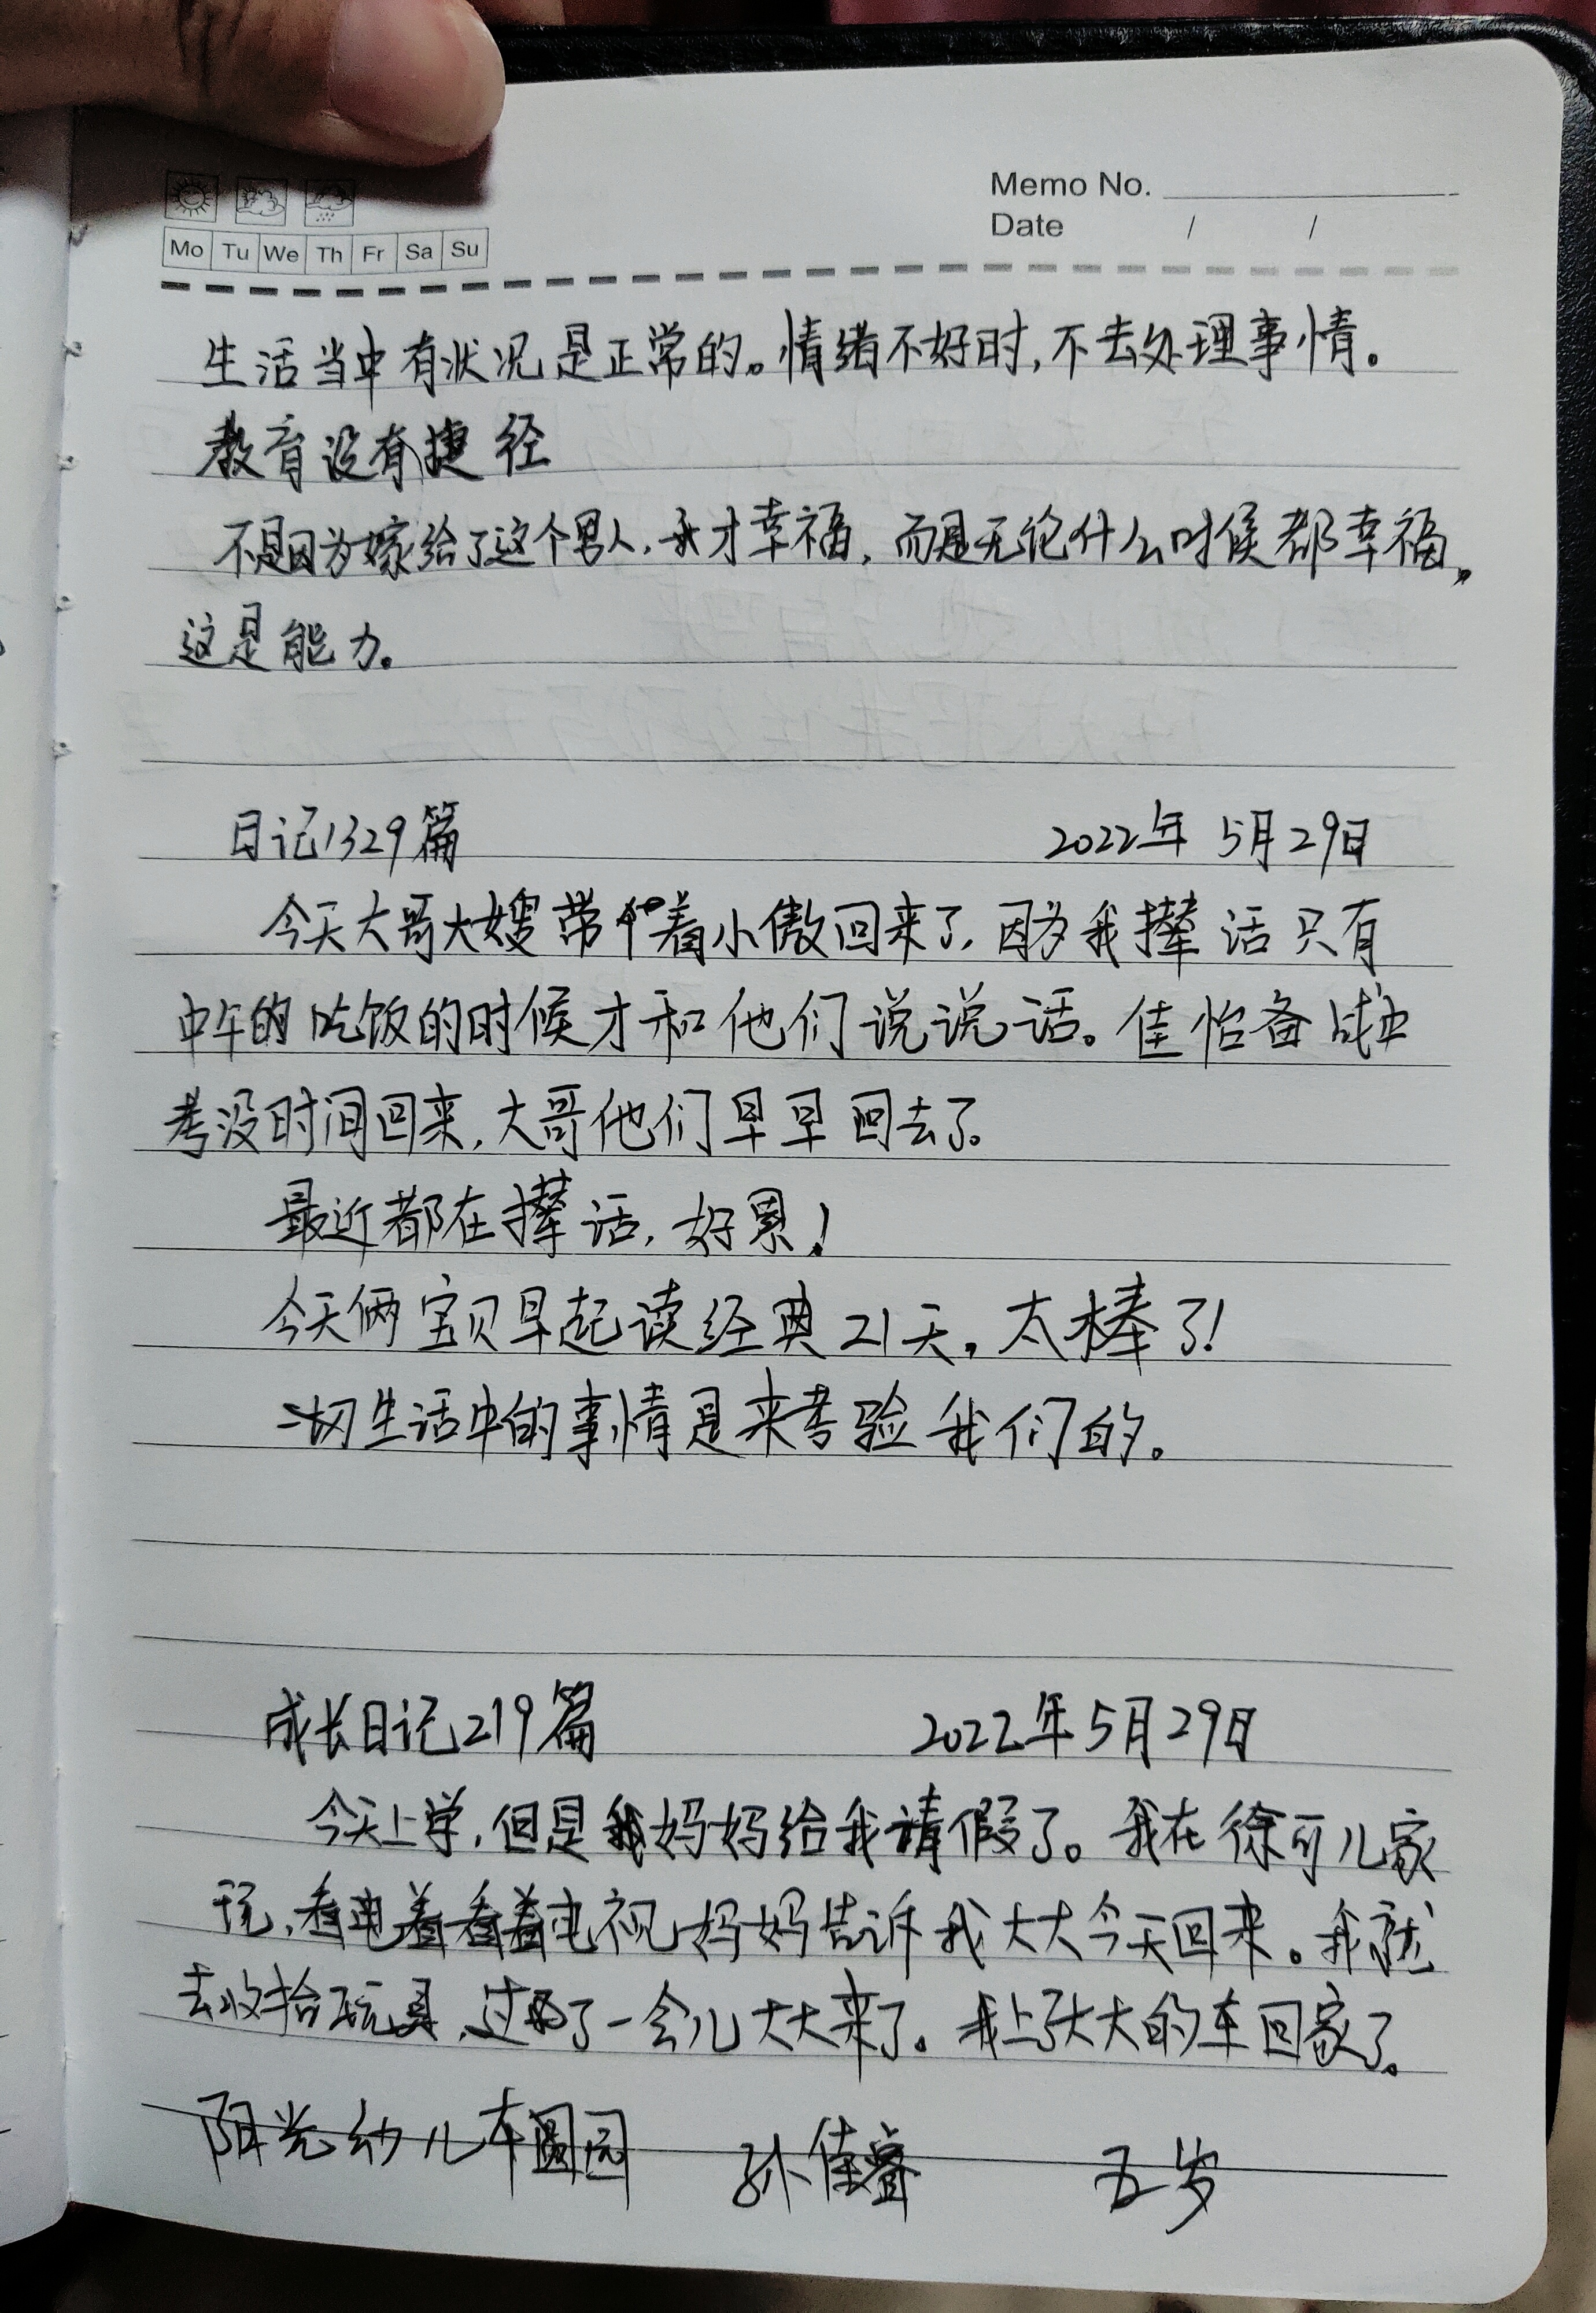 Memo No.
Date / /
Mo Tu We Th Fr Sa Su
生活当中有状况是正常的。情绪不好时,不去处理事情。
教育没有捷径
不是因为嫁给了这个男人,我才幸福,而是无论什么时候都幸福,
这是能力。
日记1329篇 2022年5月29日
今天大哥大嫂带着小傲回来了,因为我撵话只有
中午的吃饭的时候才和他们说说话。佳怡备战中
考没时间回来,大哥他们早早回去了。
最近都在撵话,好累!
今天俩宝贝早起读经典21天,太棒了!
一切生活中的事情是来考验我们的。
成长日记219篇 2022年5月29日
今天上学,但是我妈妈给我请假了。我在徐可儿家
玩,看着电视妈妈告诉我大大今天回来。我就
去收拾玩具,过了一会儿大大来了。我上了大大的车回家了。
阳光幼儿园 孙佳睿 五岁